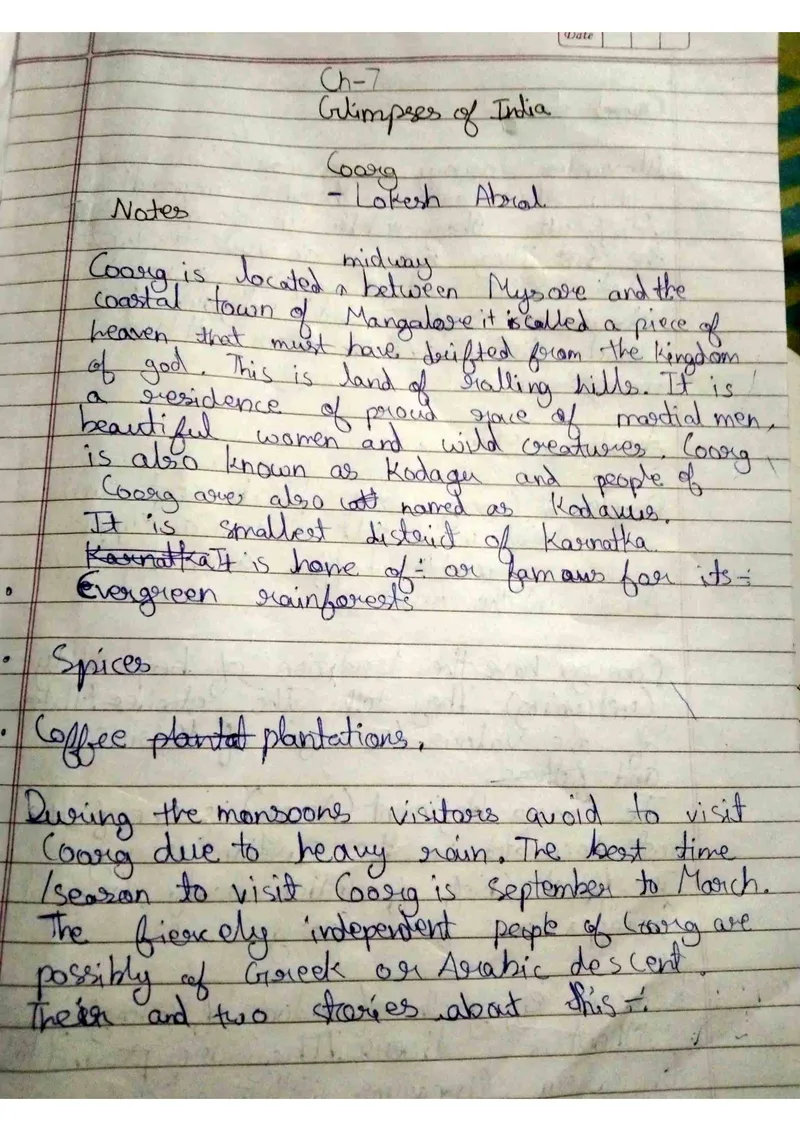 Date
Ch-7
Glimpses of India
Coorg
- Lokesh Abrol.
Notes
midway
Coorg is located ^ between Mysore and the
coastal town of Mangalore it is called a piece of
heaven that must have drifted from the kingdom
of god. This is land of ralling hills. It is
a residence of proud race of martial men,
beautiful women and wild creatures. Coorg
is also known as Kodagu and people of
Coorg are also named as Kodavus.
It is smallest district of Karnatka
Karnatka It is home of :- or famous for its :-
Evergreen rainforests
• Spices
• Coffee plantat plantations,
During the monsoons visitors avoid to visit
Coorg due to heavy rain. The best time
/season to visit Coorg is September to March.
The fiercely independent people of Coorg are
possibly of Greek or Arabic descent.
and two stories about this :-